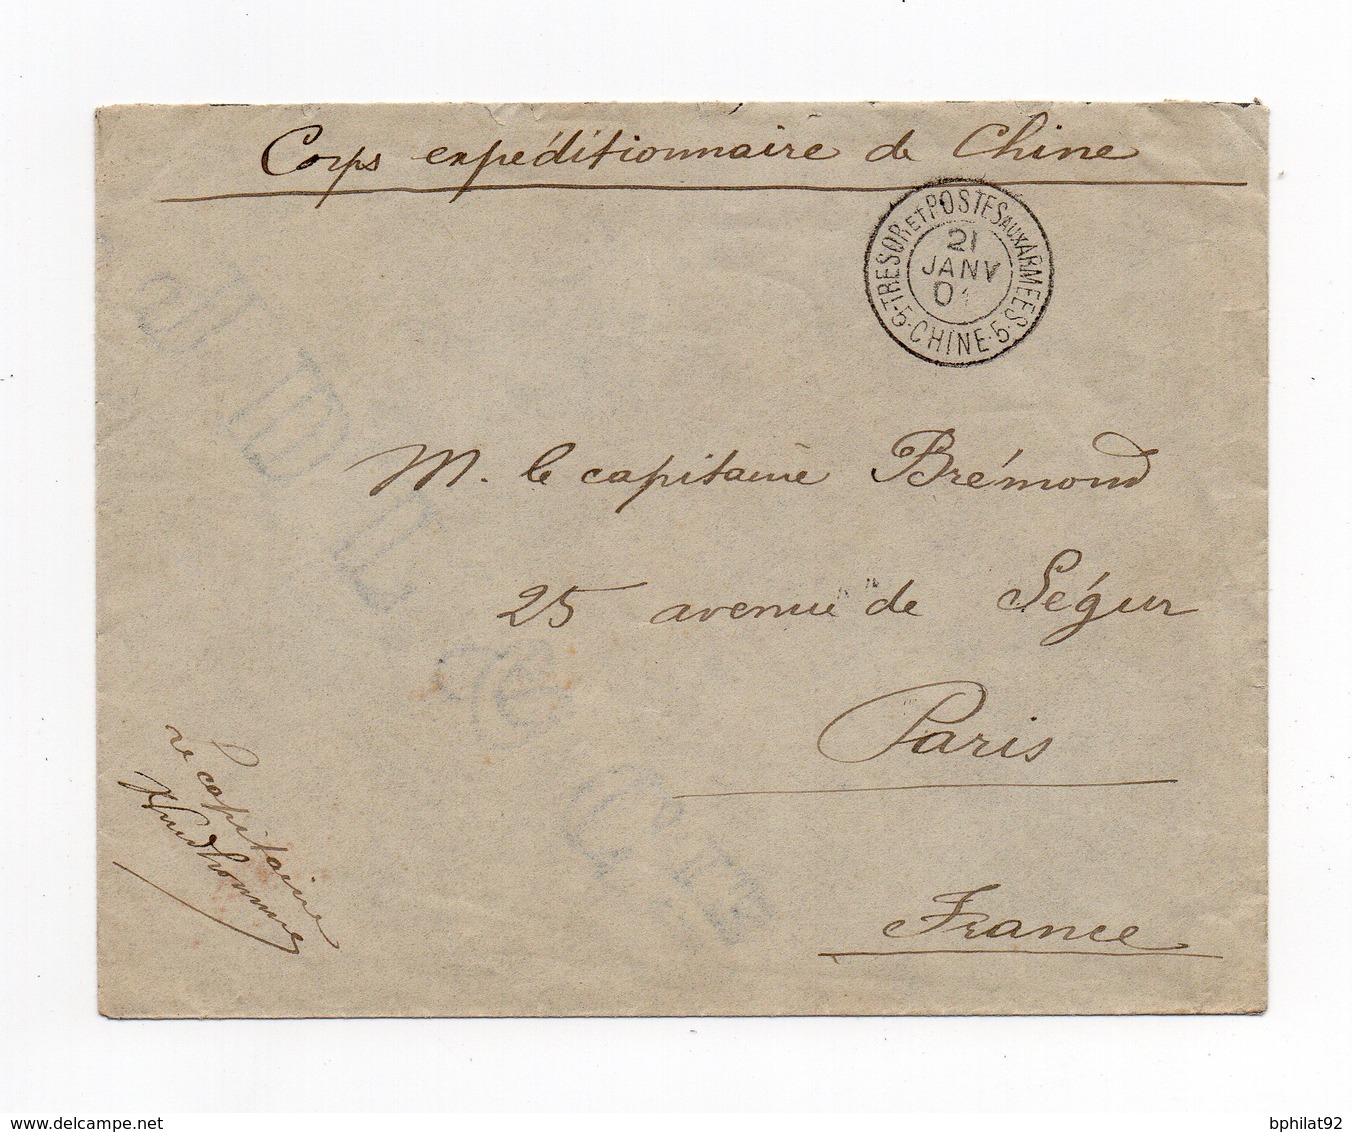 Corps expéditionnaire de Chine
TRESOR ET POSTES AUX ARMEES
21
JANV
01
·5·CHINE·5·
M. le capitaine Brémond
25 avenue de Ségur
Paris
France
Le capitaine
Prudhomme
www.delcampe.net
bphilat92